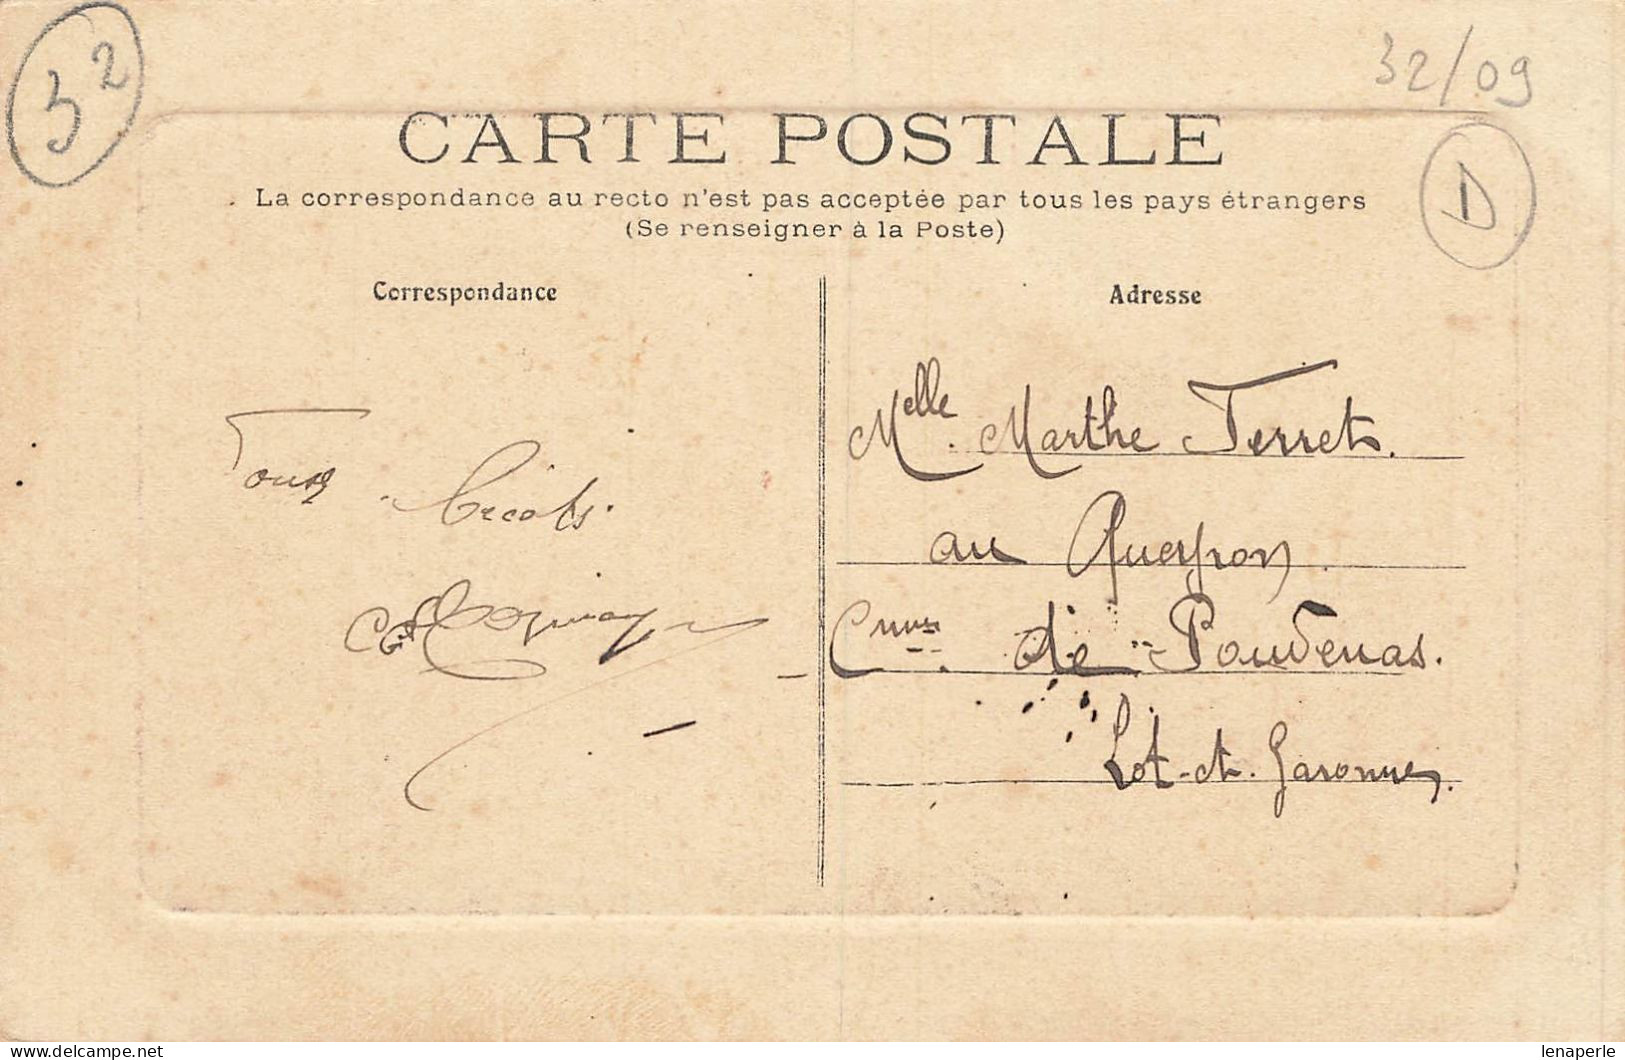 32
32/09
D
CARTE POSTALE
La correspondance au recto n'est pas acceptée par tous les pays étrangers
(Se renseigner à la Poste)
Correspondance
Adresse
Melle Marthe Ferret.
au Queyron.
Cnne de Poudenas.
Lot-et-Garonne.
lenaperle